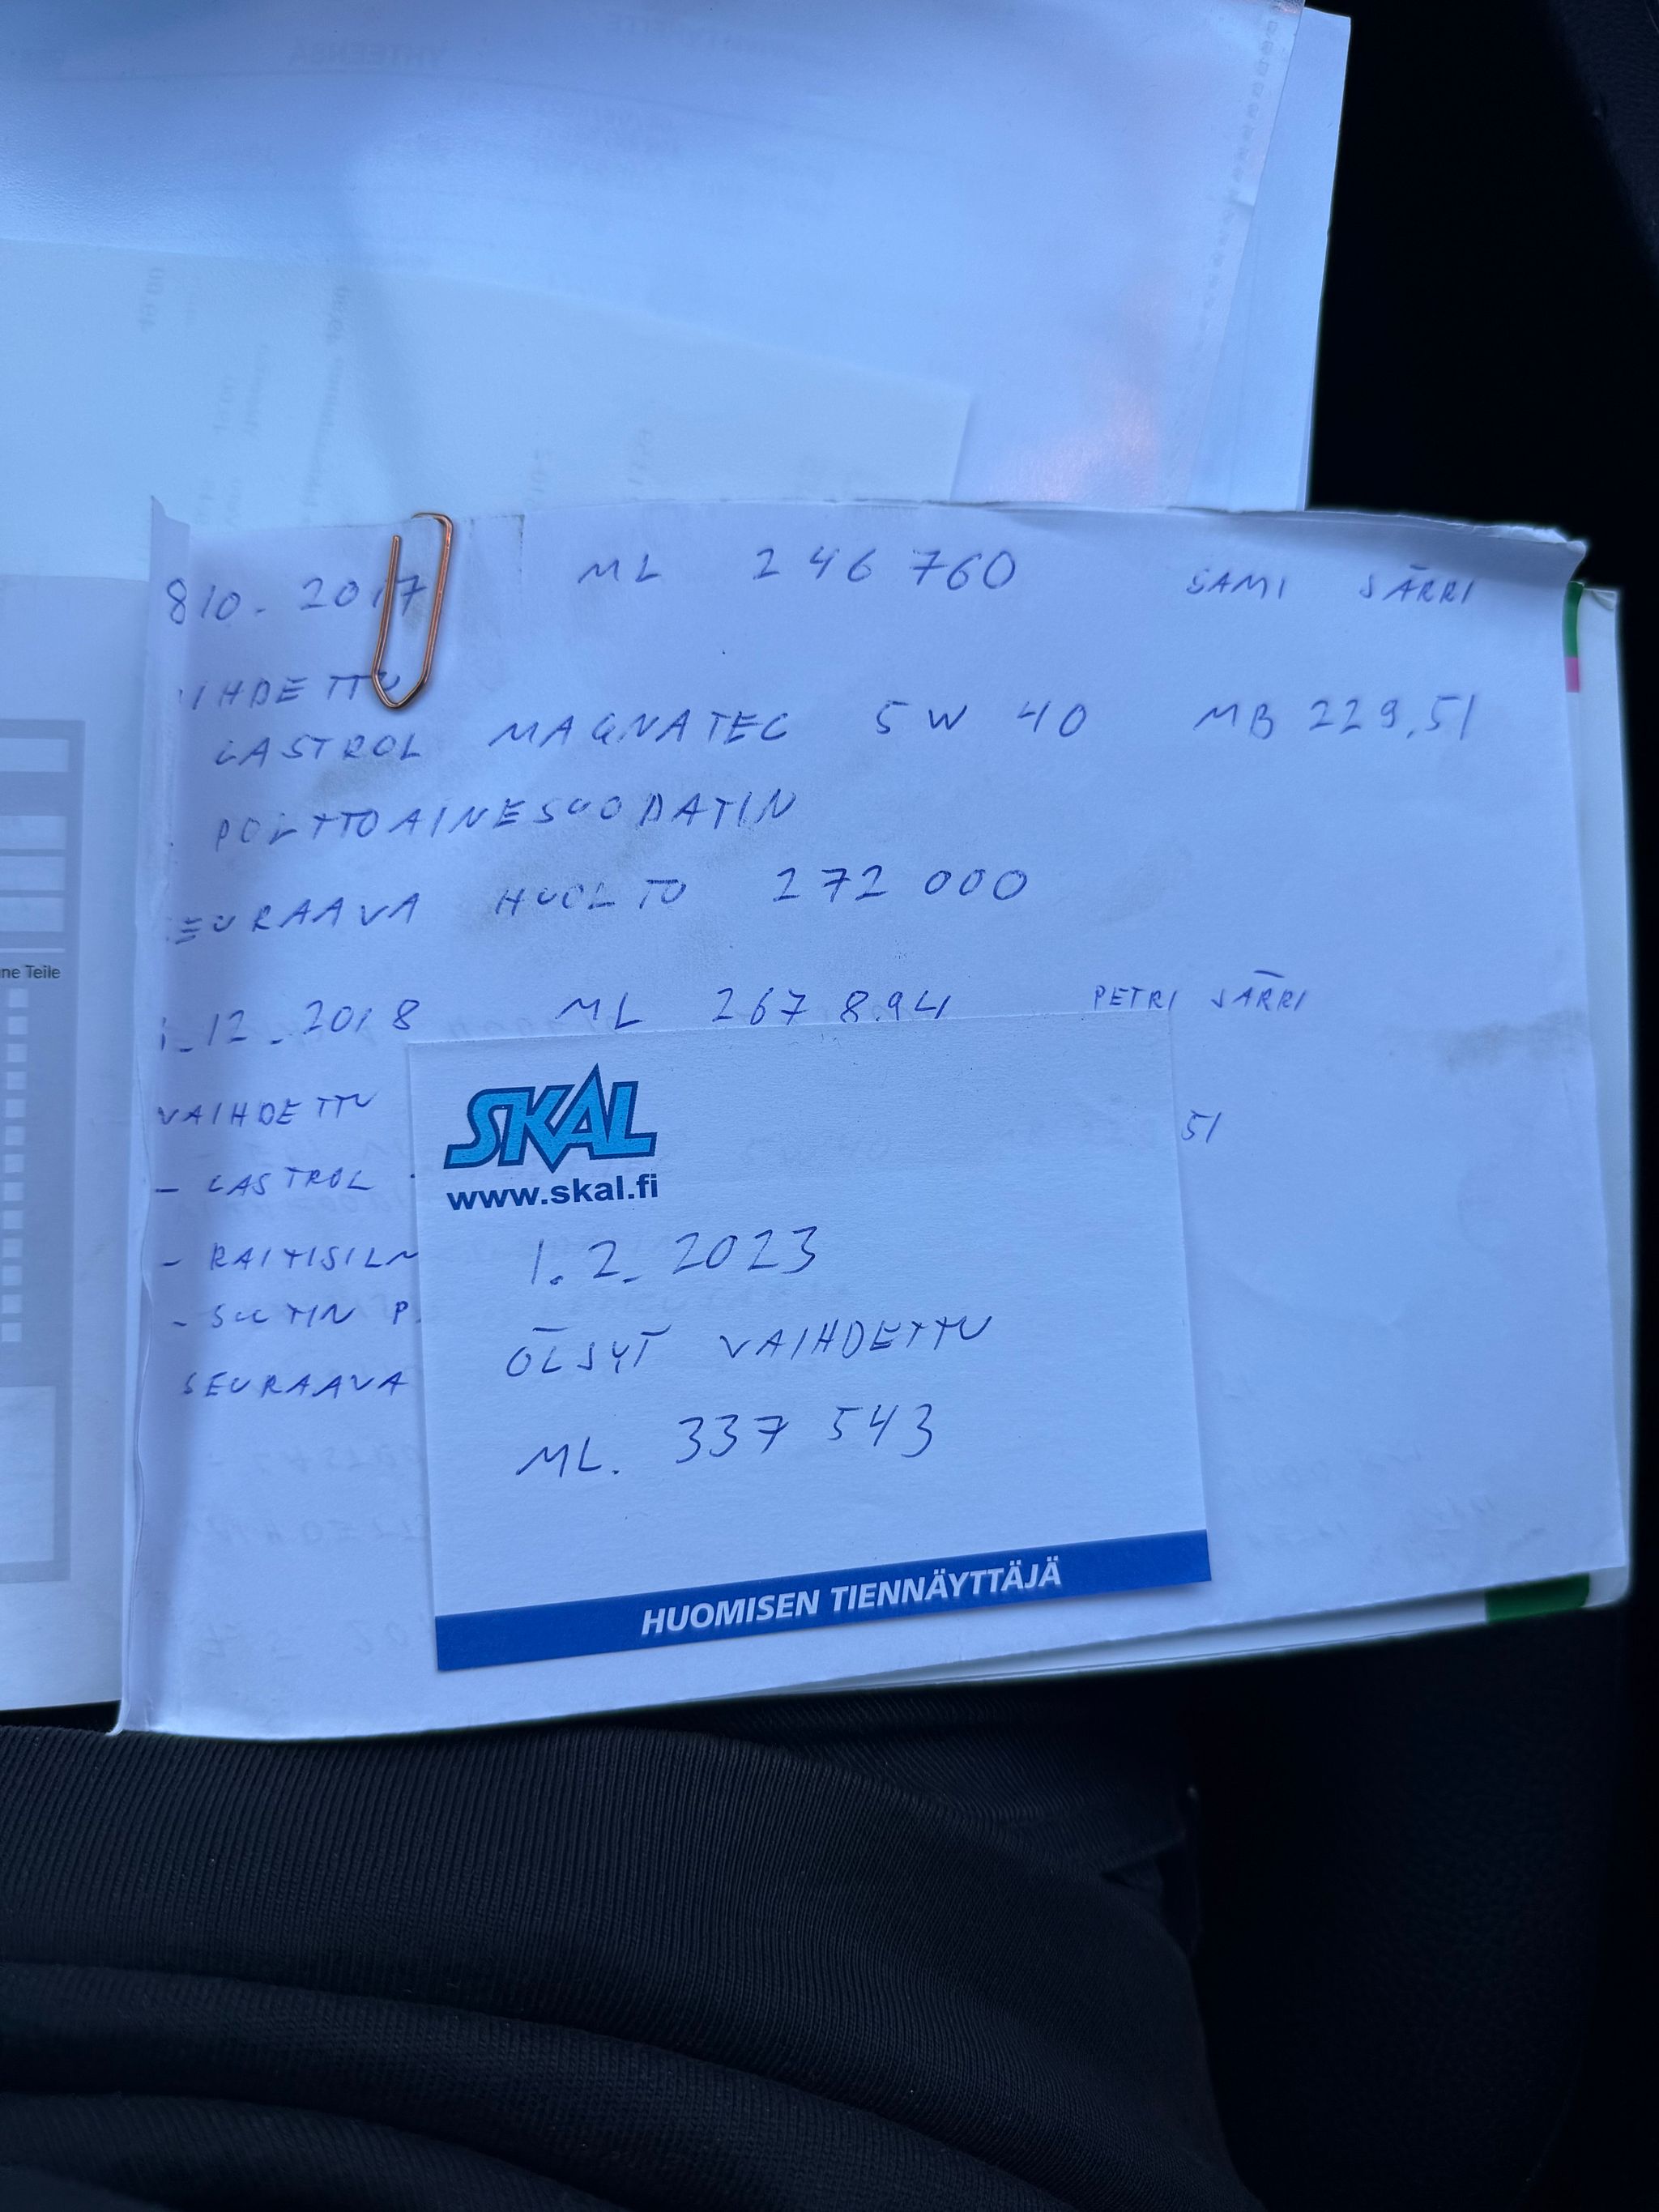 810. 2017 ML 246 760 SAMI JÄRRI
IHDETTU
CASTROL MAGNATEC 5W 40 MB 229.51
POLTTOAINESUODATIN
EURAAVA HUOLTO 272 000
ne Teile
12. 2018 ML 267 894 PETRI JÄRRI
VAIHDETTU
51
- CASTROL
- RAITISILM
- SUUTIN P
SEURAAVA
SKAL
www.skal.fi
1.2. 2023
ÖLJYT VAIHDETTU
ML. 337 543
HUOMISEN TIENNÄYTTÄJÄ